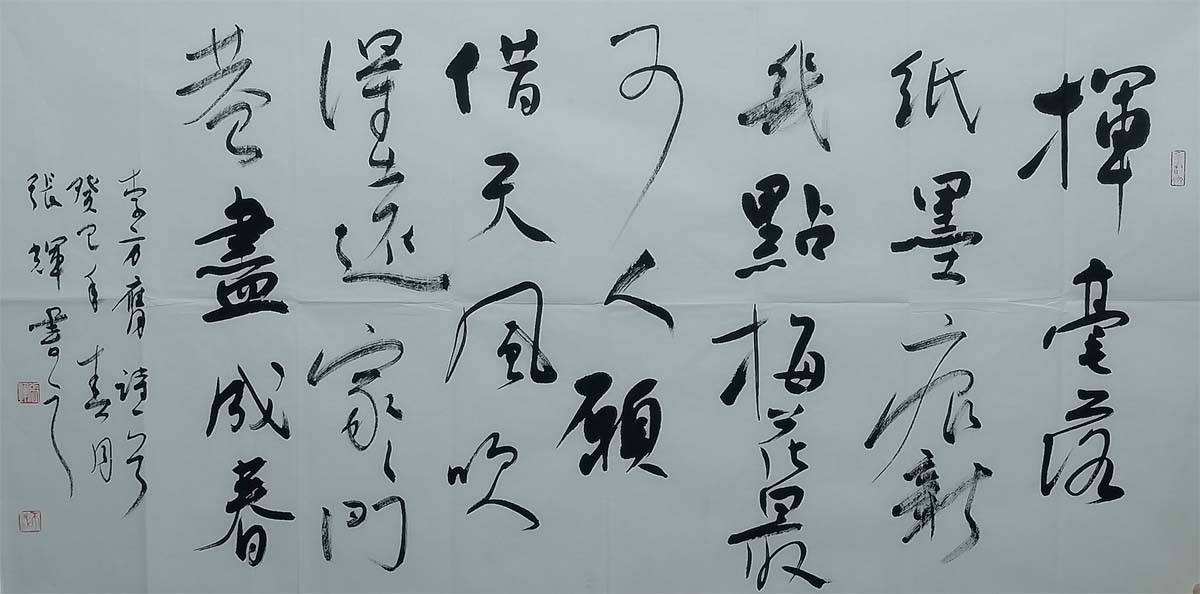 揮毫落
紙墨痕新
幾點梅花最
可人願
借天風吹
得遠家々門
巷盡成春
李方膺詩一首
癸巳年春月
張輝書之